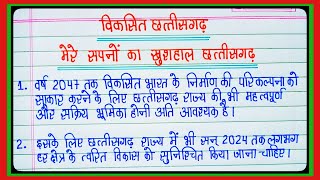 विकसित छत्तीसगढ़
मेरे सपनों का खुशहाल छत्तीसगढ़
1. वर्ष 2047 तक विकसित भारत के निर्माण की परिकल्पना को
साकार करने के लिए छत्तीसगढ़ राज्य की भी महत्वपूर्ण
और सक्रिय भूमिका होनी अति आवश्यक है।
2. इसके लिए छत्तीसगढ़ राज्य में भी सन् 2024 तक लगभग
हर क्षेत्र के त्वरित विकास को सुनिश्चित किया जाना चाहिए।